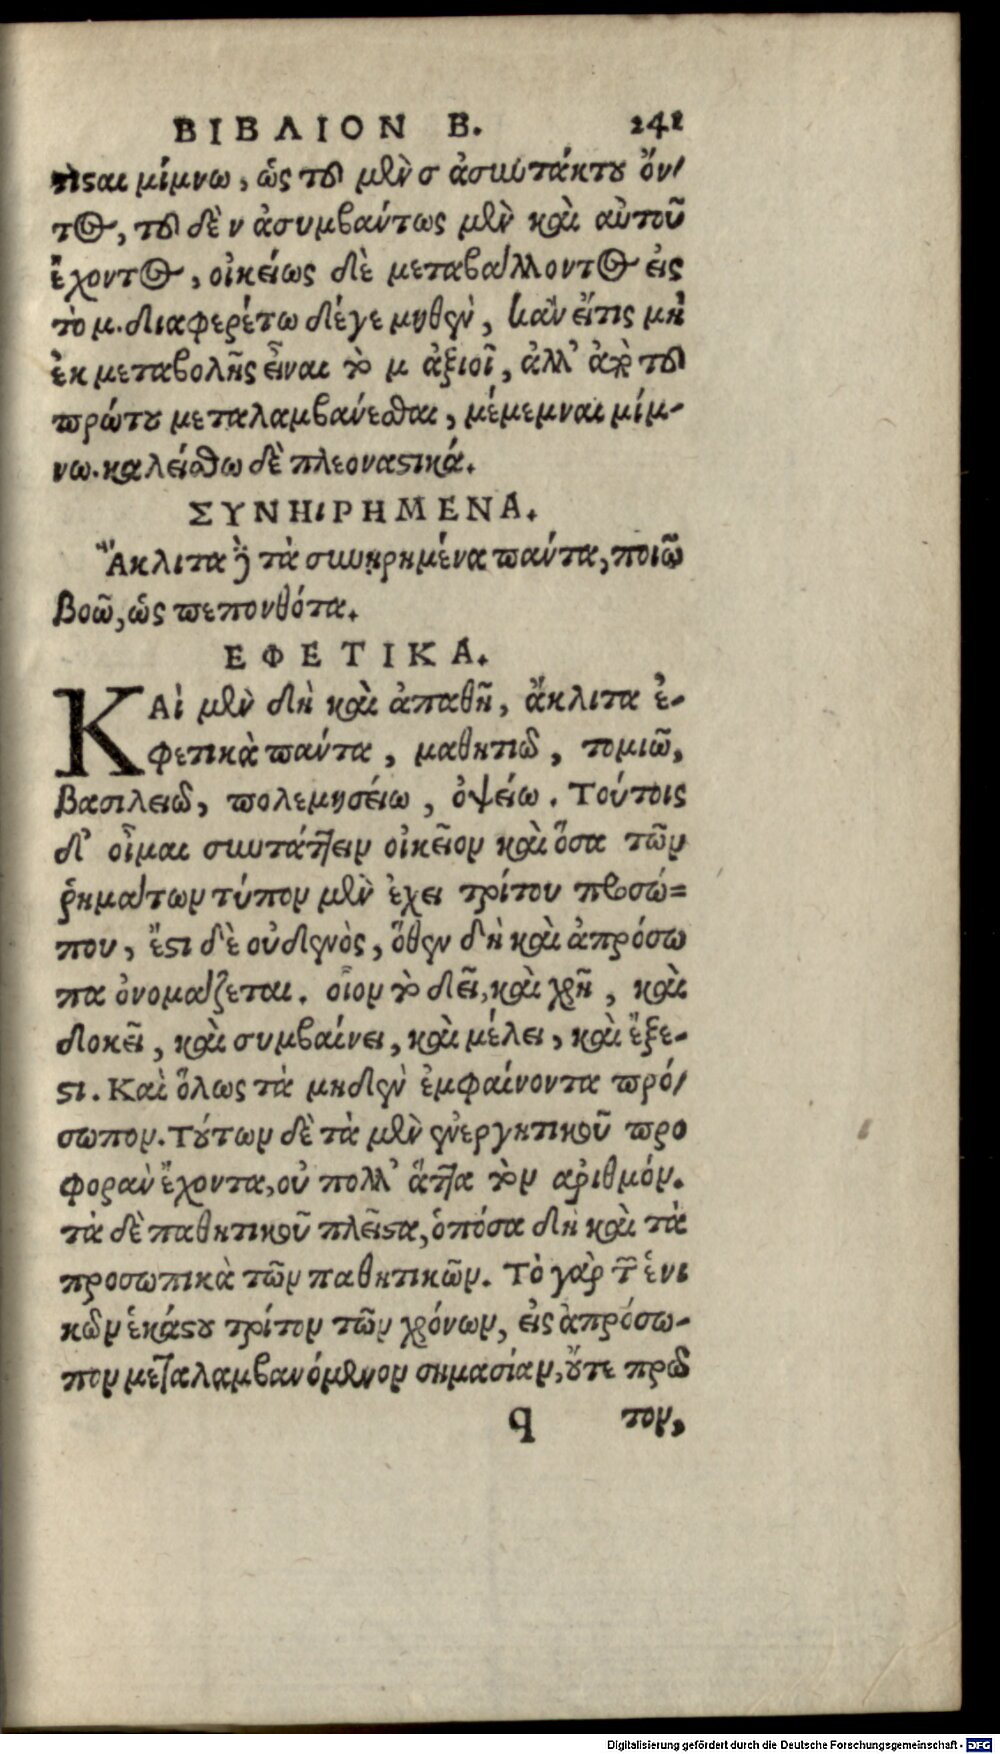 ΒΙΒΛΙΟΝ Β. 241
τιϛαι μίμνω, ὡς τοῦ μὲν σ ἀσυντάκτου ὄν-
τος, τοῦ δὲ ν ἀσυμβαύτως μὲν καὶ αὐτοῦ
ἔχοντος, οἰκείως δὲ μεταβάλλοντος εἰς
τὸ μ. διαφερέτω δέγε μηθὲν, κἂν εἴτις μὴ
ἐκ μεταβολῆς εἶναι τὸ μ ἀξιοῖ, ἀλλ' ἀπὸ τοῦ
πρώτου μεταλαμβάνεσθαι, μέμεμναι μίμ-
νω. καλείσθω δὲ πλεοναϛικά.
ΣΥΝΗΙΡΗΜΕΝΑ.
Ἄκλιτα δὲ τὰ συνῃρημένα πάντα, ποιῶ
βοῶ, ὡς πεπονθότα.
ΕΦΕΤΙΚΑ.
ΚΑὶ μὲν δὴ καὶ ἀπαθῆ, ἄκλιτα ἐ-
φετικὰ πάντα, μαθητιῶ, τομιῶ,
βασιλειῶ, πολεμησέιω, ὀψείω. Τούτοις
δ' οἶμαι συντάττειν οἰκεῖον καὶ ὅσα τῶν
ῥημάτων τύπον μὲν ἔχει τρίτου προσώ=
που, ἔϛι δὲ οὐδενὸς, ὅθεν δὴ καὶ ἀπρόσω
πα ὀνομάζεται. οἷον τὸ δεῖ, καὶ χρῆ, καὶ
δοκεῖ, καὶ συμβαίνει, καὶ μέλει, καὶ ἔξε-
ϛι. Καὶ ὅλως τὰ μηδὲν ἐμφαίνοντα πρό-
σωπον. Τούτων δὲ τὰ μὲν ἐνεργητικοῦ προ
φορὰν ἔχοντα, οὐ πολλ' ἄττα τὸν ἀριθμόν.
τὰ δὲ παθητικοῦ πλεῖϛα, ὁπόσα δὴ καὶ τὰ
προσωπικὰ τῶν παθητικῶν. Τὸ γὰρ τῶν ἑνι
κῶν ἑκάϛου τρίτον τῶν χρόνων, εἰς ἀπρόσω-
πον μεταλαμβανόμενον σημασίαν, οὔτε πρῶ
q τον,
Digitalisierung gefördert durch die Deutsche Forschungsgemeinschaft - DFG